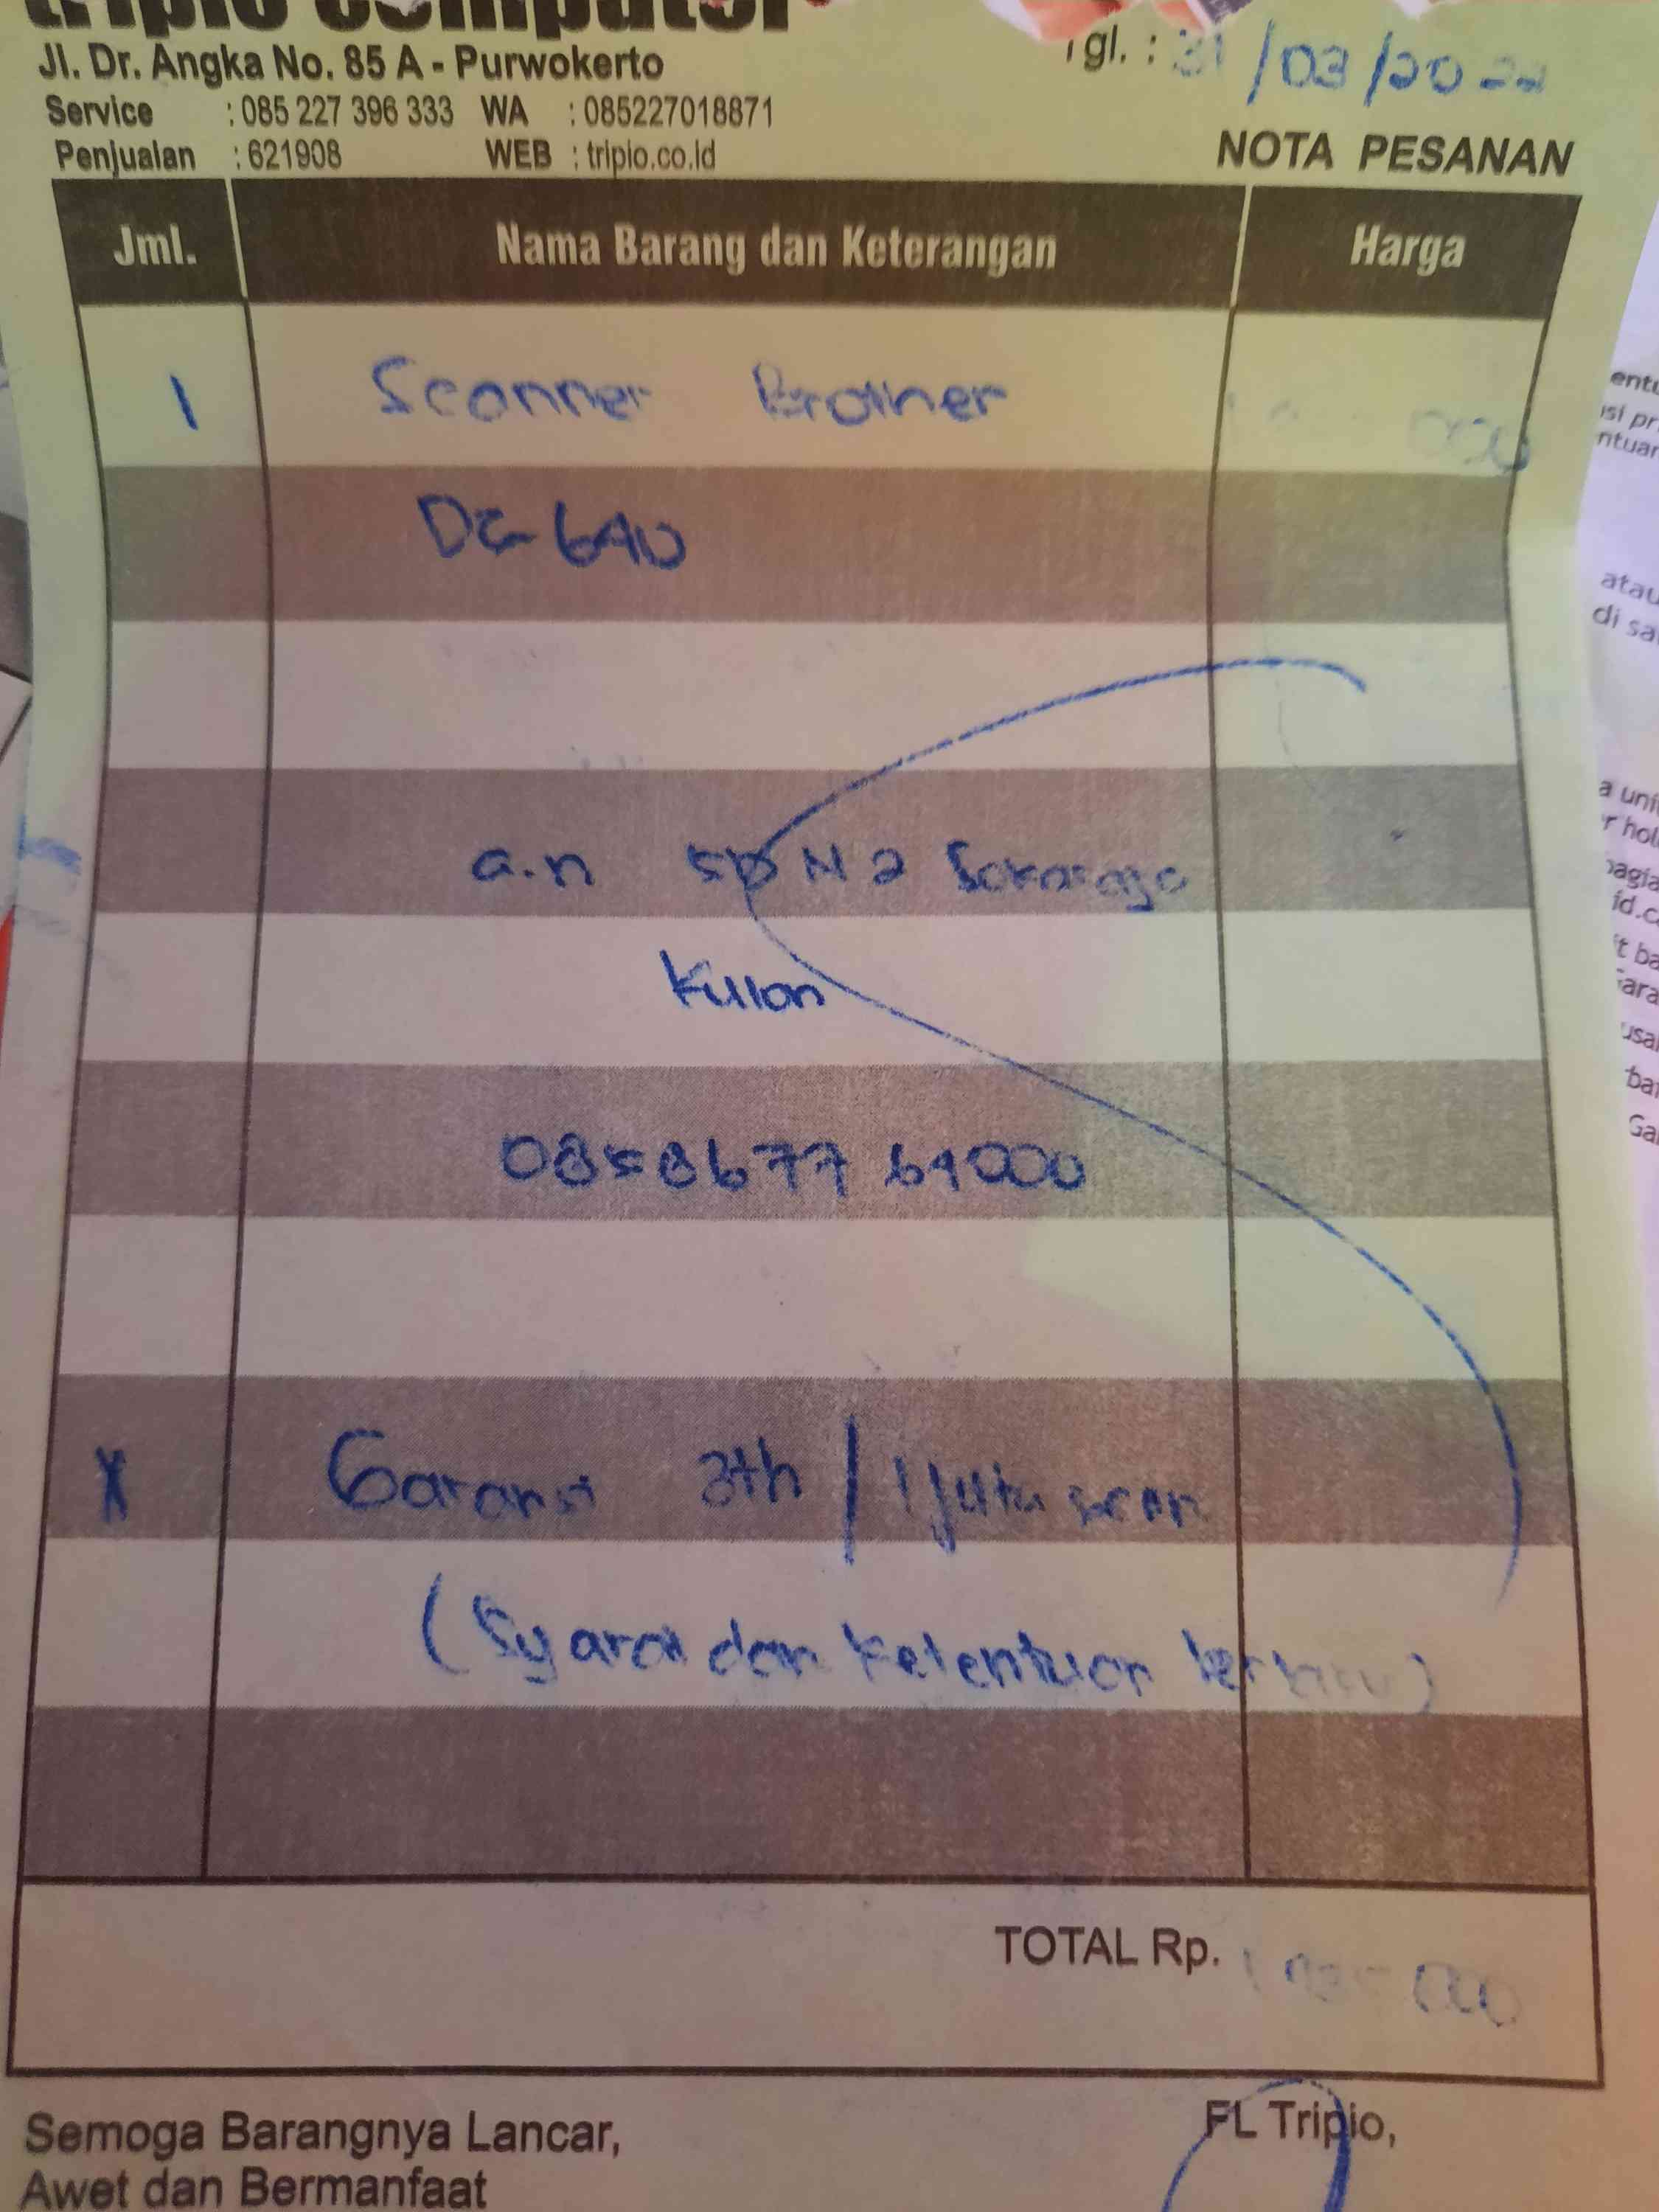 triplo computer
Jl. Dr. Angka No. 85 A - Purwokerto
Tgl. : 31/03/2022
Service : 085 227 396 333 WA : 085227018871
Penjualan : 621908 WEB : triplo.co.id
NOTA PESANAN
Jml. Nama Barang dan Keterangan Harga
1 Scanner Brother 000
DS 640
a.n SD N 2 Sokaraja
Kulon
0858677 64000
X Garansi 3th / 1 juta scan
(Syarat dan Ketentuan berlaku)
TOTAL Rp. 000
Semoga Barangnya Lancar,
Awet dan Bermanfaat
FL Triplo,
entu
si pr
ntuan
atau
di sa
a uni
r hol
bagia
id.c
t ba
Gara
usa
bat
Ga